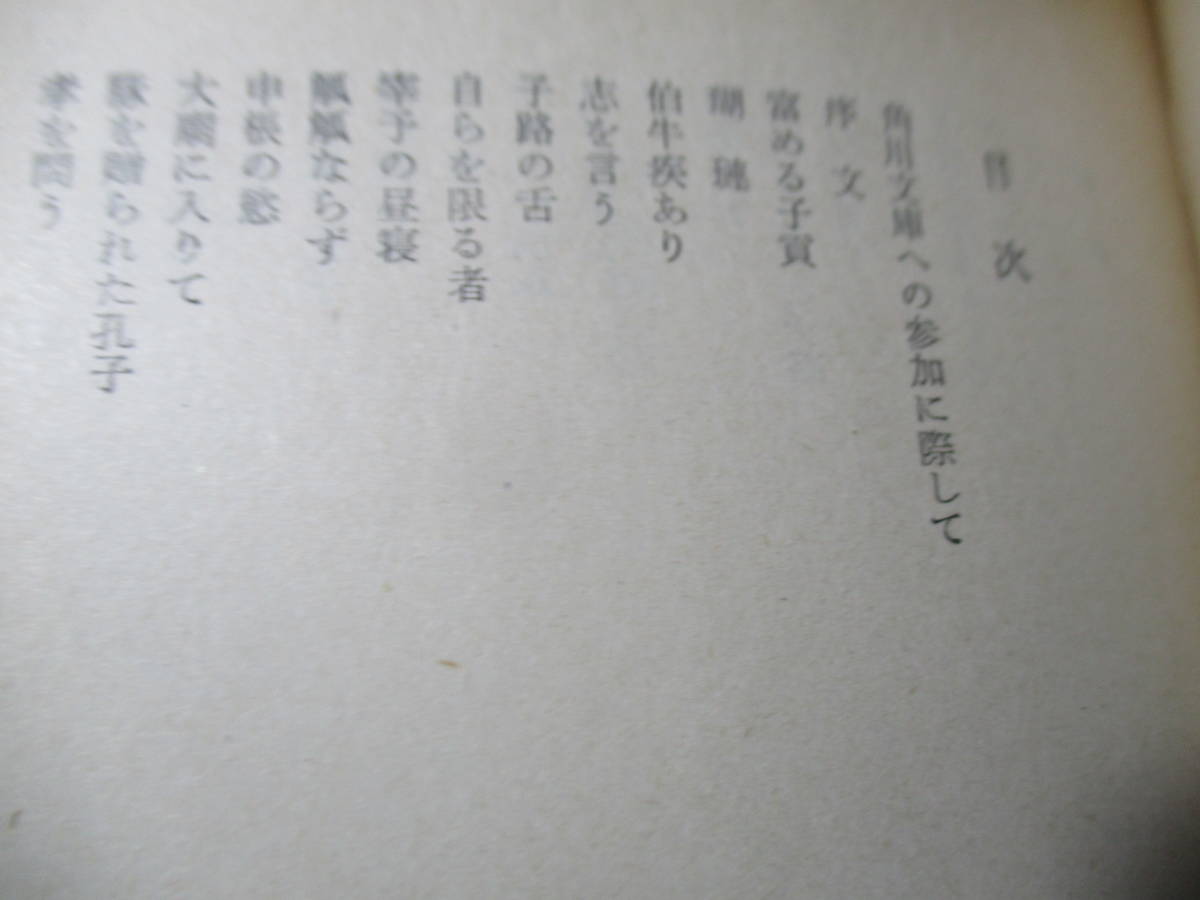 目次
角川文庫への参加に際して
序文
富める子貢
瑚璉
伯牛疾あり
志を言う
子路の舌
自らを限る者
宰予の昼寝
觚觚ならず
申棖の慾
大廟に入りて
豚を贈られた孔子
孝を問う